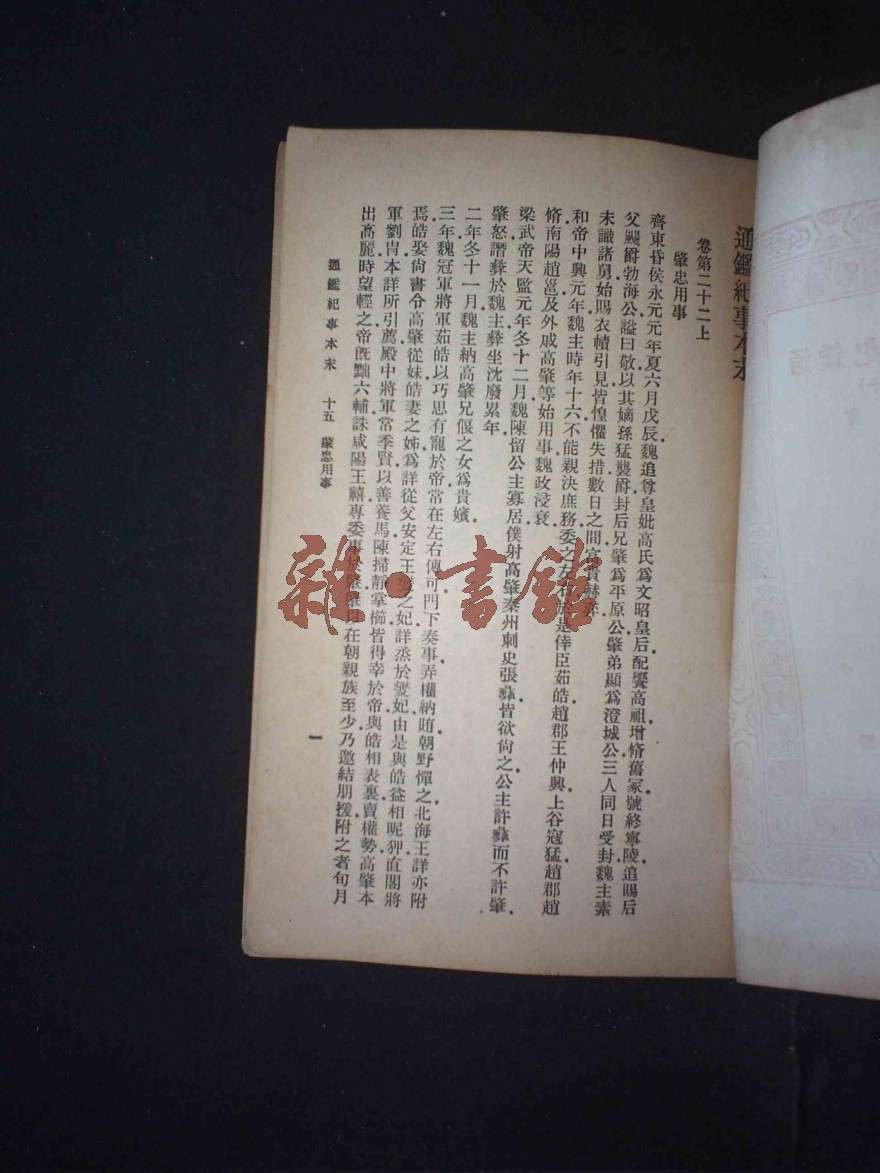 通鑑紀事本末
卷第二十二上
肇忠用事
齊東昏侯永元元年夏六月戊辰魏追尊皇妣高氏為文昭皇后配饗高祖增脩舊冢號終寧陵追賜后
父颺爵勃海公謚曰敬以其嫡孫猛襲爵封后兄肇為平原公肇弟顯為澄城公三人同日受封魏主素
未識諸舅始賜衣幘引見皆惶懼失措數日之間富貴赫弈
和帝中興元年魏主時年十六不能親決庶務委之左右於是倖臣茹皓趙郡王仲興上谷寇猛趙郡趙
脩南陽趙邕及外戚高肇等始用事魏政浸衰
梁武帝天監元年冬十二月魏陳留公主寡居僕射高肇秦州刺史張彝皆欲尚之公主許彝而不許肇
肇怒譖彝於魏主彝坐沈廢累年
二年冬十一月魏主納高肇兄偃之女為貴嬪
三年魏冠軍將軍茹皓以巧思有寵於帝常在左右傳可門下奏事弄權納賄朝野憚之北海王詳亦附
焉皓娶尚書令高肇從妹皓妻之姊為詳從父安定王燮之妃詳烝於燮妃由是與皓益相昵狎直閣將
軍劉冑本詳所引薦殿中將軍常季賢以善養馬陳掃靜掌櫛皆得幸於帝與皓相表裏賣權勢高肇本
出高麗時望輕之帝既黜六輔誅咸陽王禧專委事於肇肇以在朝親族至少乃邀結朋援附之者旬月
通鑑紀事本末 十五 肇忠用事
一
雜·書館